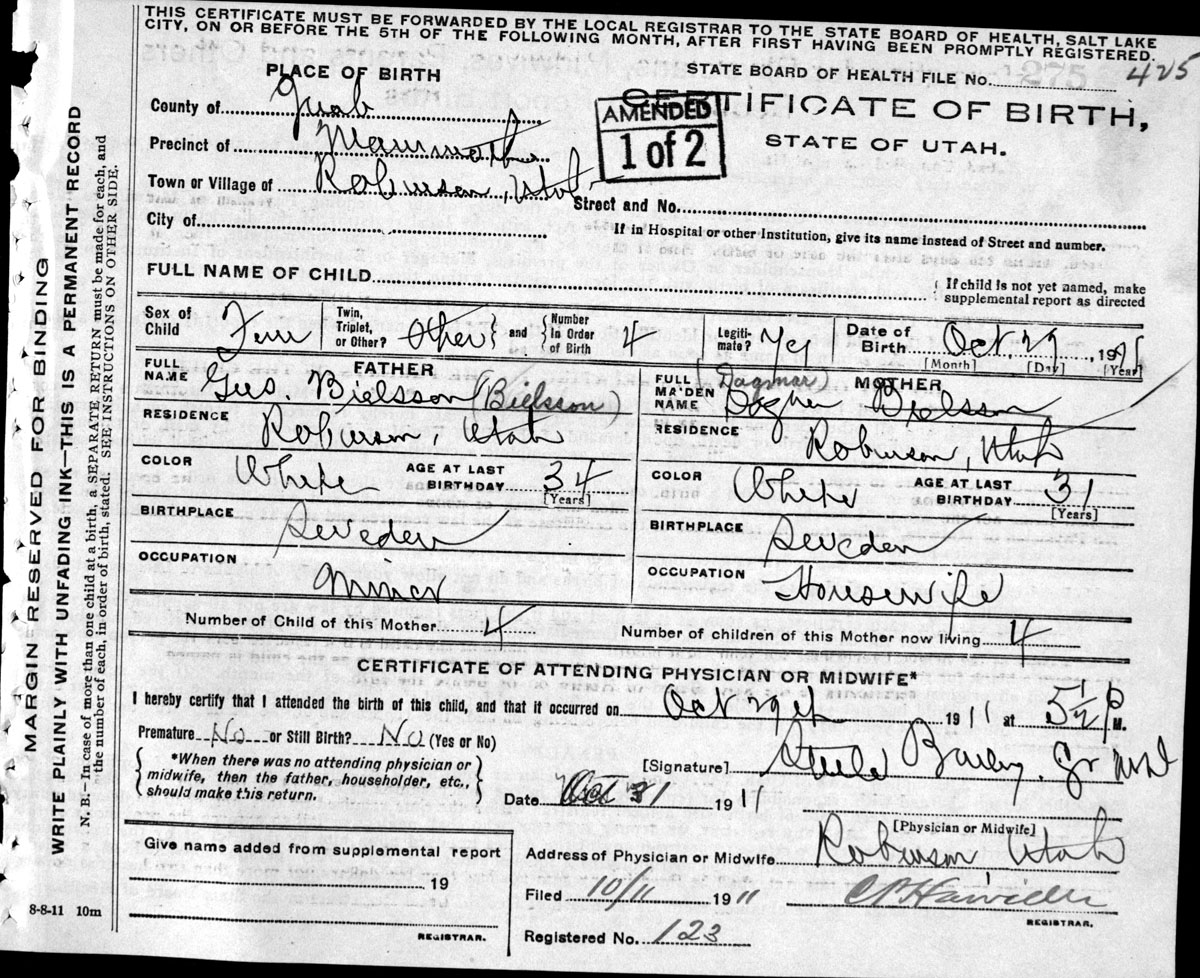 THIS CERTIFICATE MUST BE FORWARDED BY THE LOCAL REGISTRAR TO THE STATE BOARD OF HEALTH, SALT LAKE
CITY, ON OR BEFORE THE 5TH OF THE FOLLOWING MONTH, AFTER FIRST HAVING BEEN PROMPTLY REGISTERED.
STATE BOARD OF HEALTH FILE No. 275 425
PLACE OF BIRTH
CERTIFICATE OF BIRTH,
STATE OF UTAH.
AMENDED
1 of 2
County of Juab
Precinct of Mammoth
Town or Village of Robinson, Utah
Street and No.
City of
If in Hospital or other Institution, give its name instead of Street and number.
FULL NAME OF CHILD
{ If child is not yet named, make
supplemental report as directed
Sex of Child Fem
Twin, Triplet, or Other? Other } and { Number in Order of Birth 4
Legiti-mate? Yes
Date of Birth Oct. 29, 1911
[Month] [Day] [Year]
FATHER
FULL NAME Gus. Bielsson (Bielsson)
RESIDENCE Robinson, Utah
COLOR White AGE AT LAST BIRTHDAY 34
[Years]
BIRTHPLACE Sweden
OCCUPATION Miner
MOTHER
FULL MA'DEN NAME (Dagmar) Bielsson
RESIDENCE Robinson, Utah
COLOR White AGE AT LAST BIRTHDAY 31
[Years]
BIRTHPLACE Sweden
OCCUPATION Housewife
Number of Child of this Mother 4 Number of children of this Mother now living 4
CERTIFICATE OF ATTENDING PHYSICIAN OR MIDWIFE*
I hereby certify that I attended the birth of this child, and that it occurred on Oct 29th 1911 at 5 1/2 P M.
Premature No or Still Birth? No (Yes or No)
{ *When there was no attending physician or
midwife, then the father, householder, etc.,
should make this return. }
[Signature] Steele Bailey. Jr MD
Date Oct 31 1911
[Physician or Midwife]
Address of Physician or Midwife Robinson, Utah
Filed 10/11 1911
REGISTRAR.
Registered No. 123
Give name added from supplemental report
19
REGISTRAR.
8-8-11 10m
MARGIN RESERVED FOR BINDING
WRITE PLAINLY WITH UNFADING INK—THIS IS A PERMANENT RECORD
N. B.—In case of more than one child at a birth, a SEPARATE RETURN must be made for each, and
the number of each, in order of birth, stated. SEE INSTRUCTIONS ON OTHER SIDE.